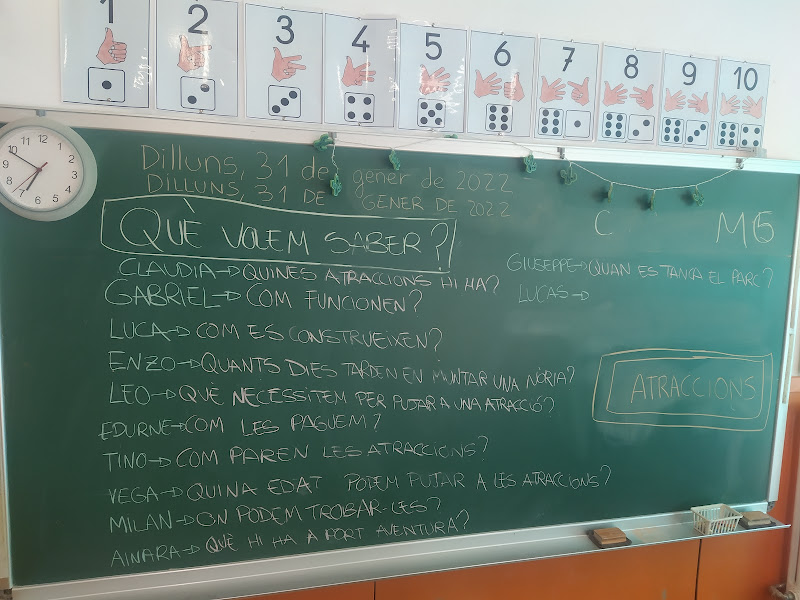 1 2 3 4 5 6 7 8 9 10
12 1 2 3 4 5 6 7 8 9 10 11
Dilluns, 31 de gener de 2022
DILLUNS, 31 DE GENER DE 2022
C M
QUÈ VOLEM SABER?
CLAUDIA→QUINES ATRACCIONS HI HA?
GABRIEL→COM FUNCIONEN?
LUCA→COM ES CONSTRUEIXEN?
ENZO→QUANTS DIES TARDEN EN MUNTAR UNA NÒRIA?
LEO→QUÈ NECESSITEM PER PUJAR A UNA ATRACCIÓ?
EDURNE→COM LES PAGUEM?
TINO→COM PAREN LES ATRACCIONS?
VEGA→QUINA EDAT PODEM PUJAR A LES ATRACCIONS?
MILAN→ON PODEM TROBAR-LES?
AINARA→QUÈ HI HA A PORT AVENTURA?
GIUSEPPE→QUAN ES TANCA EL PARC?
LUCAS→
ATRACCIONS